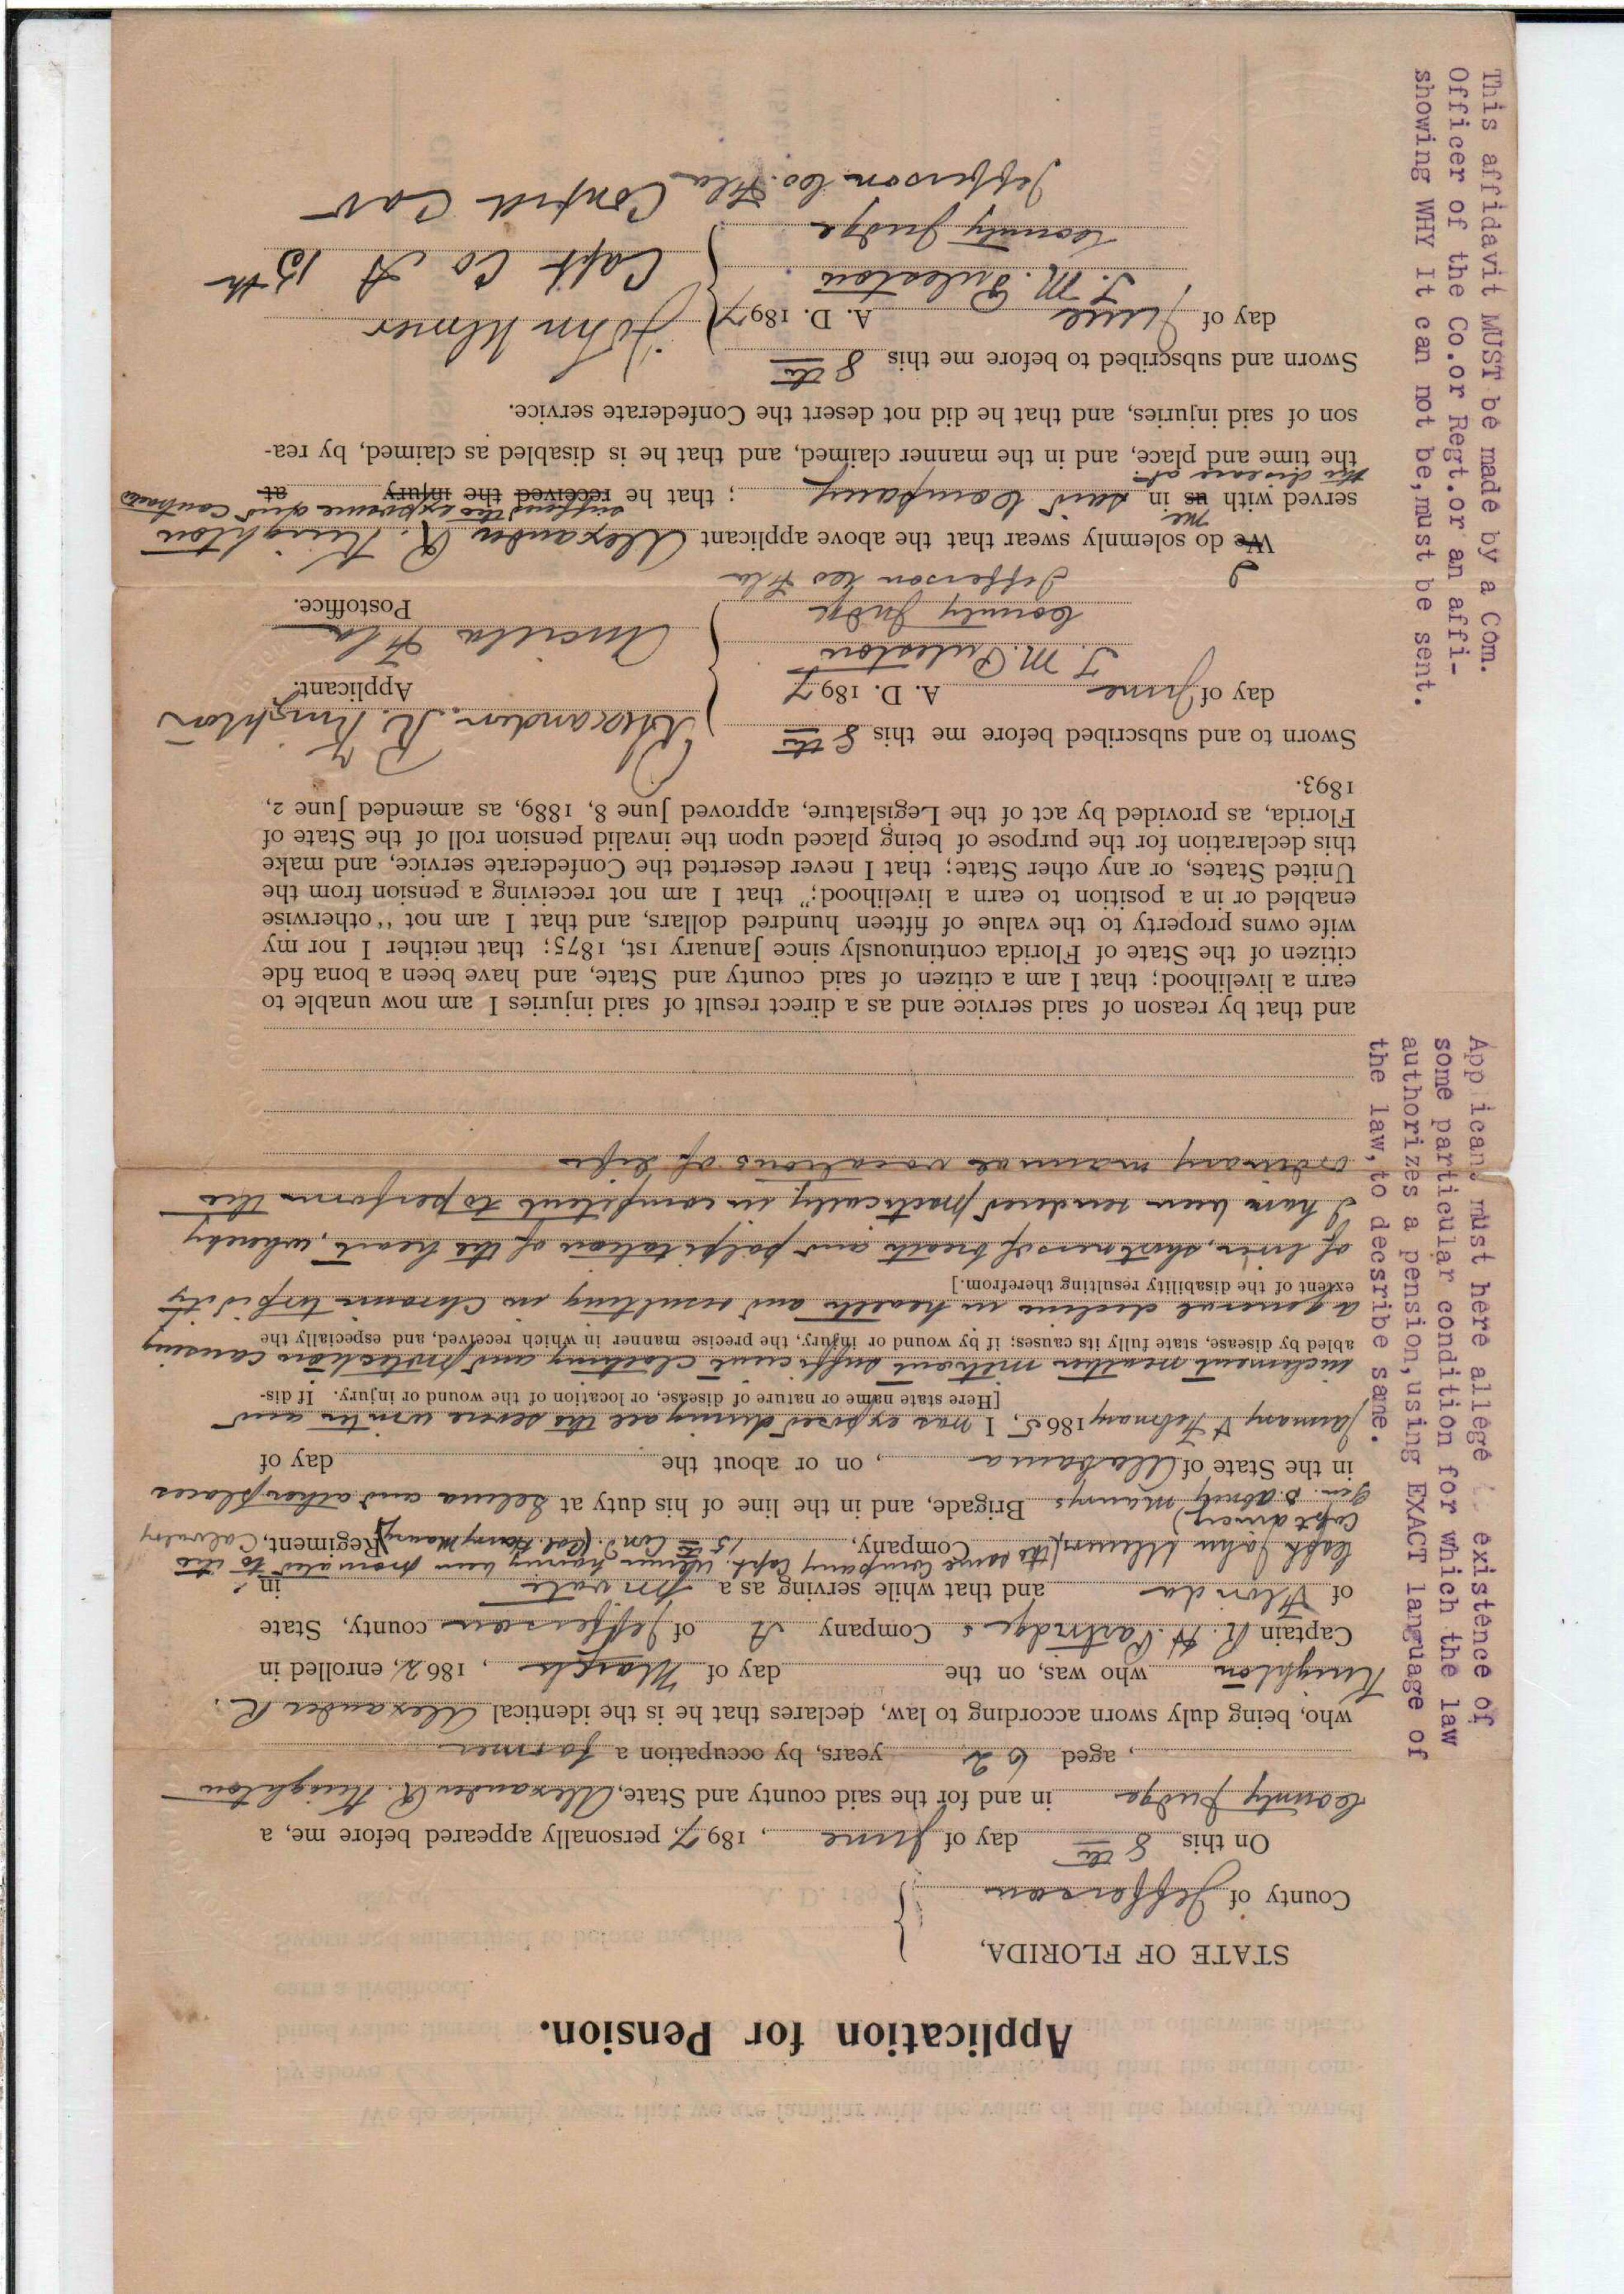 Application for Pension.
STATE OF FLORIDA,
County of Jefferson
On this 8th day of June, 1897, personally appeared before me, a
County Judge in and for the said county and State, Alexander R. Knighton
, aged 62 years, by occupation a farmer
who, being duly sworn according to law, declares that he is the identical Alexander R.
Knighton who was, on the day of March, 1862, enrolled in
Captain R. H. Partridge's Company A of Jefferson county, State
of Florida and that while serving as a private in
Capt John Ulmers (the same Company Capt. Ulmer having been promoted to the
Captaincy) Company, 15th Con. (Col. Henry Maury) Regiment, Calvalry
Gen. Dabney Maurys Brigade, and in the line of his duty at Selma and other places
in the State of Alabama, on or about the day of
January & February 1865, I was exposed during all the severe winter and
[Here state name or nature of disease, or location of the wound or injury. If dis-
inclement weather without sufficient clothing and protection causing
abled by disease, state fully its causes; if by wound or injury, the precise manner in which received, and especially the
a general decline in health and resulting in Chronic torpidity
extent of the disability resulting therefrom.]
of liver, shortness of breath and palpitation of the heart, whereby
I have been rendered practically in competent to perform the
ordinary manual vocations of life
and that by reason of said service and as a direct result of said injuries I am now unable to
earn a livelihood; that I am a citizen of said county and State, and have been a bona fide
citizen of the State of Florida continuously since January 1st, 1875; that neither I nor my
wife owns property to the value of fifteen hundred dollars, and that I am not "otherwise
enabled or in a position to earn a livelihood;" that I am not receiving a pension from the
United States, or any other State; that I never deserted the Confederate service, and make
this declaration for the purpose of being placed upon the invalid pension roll of the State of
Florida, as provided by act of the Legislature, approved June 8, 1889, as amended June 2,
1893.
Sworn to and subscribed before me this 8th
day of June A. D. 1897
T. M. Puleston
County Judge
Jefferson Co Fla
Alexander. R. Knighton
Applicant.
Aucilla Fla
Postoffice.
I
We do solemnly swear that the above applicant Alexander R. Knighton
me suffered the exposure and contracted
served with us in said Company; that he received the injury at
the disease at
the time and place, and in the manner claimed, and that he is disabled as claimed, by rea-
son of said injuries, and that he did not desert the Confederate service.
Sworn and subscribed to before me this 8th
day of June A. D. 1897
T. M. Puleston
County Judge
Jefferson Co. Fla
John Ulmer
Capt Co A 15th
Confed Cav
Applicant must here allege existence of
some particular condition for which the law
authorizes a pension, using EXACT language of
the law, to decsribe same.
This affidavit MUST be made by a Com.
Officer of the Co. or Regt. or an affi-
showing WHY it can not be, must be sent.
We do solemnly swear that we are familiar with the value of all the property owned
by above and his wife, and that the actual com-
bined value thereof
earn a livelihood.
Sworn and subscribed to before me this
A. D. 189